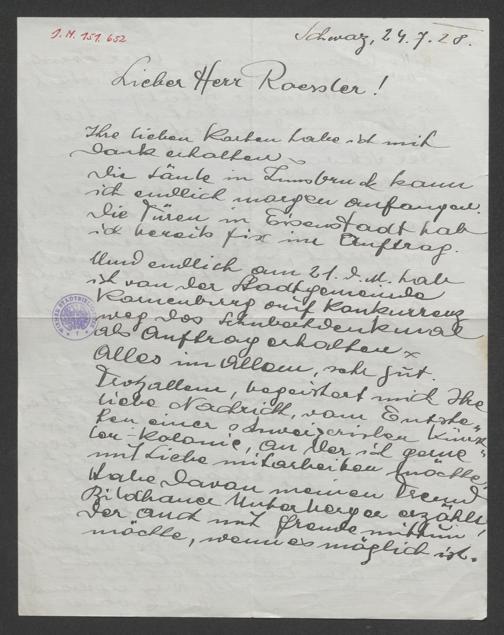 J.N. 151.652
Schwaz, 24.7.28.
Lieber Herr Roessler!
Ihre lieben Karten habe ich mit
Dank erhalten
Die Säule in Innsbruck kann
ich endlich morgen anfangen.
Die Türen in Eisenstadt hab
ich bereits fix im Auftrag.
Und endlich am 21. d. M. hab
ich von der Stadtgemeinde
Korneuburg auf Konkurrenz
weg das Schubertdenkmal
als Auftrag erhalten
Alles im Allem, sehr gut.
Trotzallem, begeistert mich Ihre
liebe Nachricht, vom Entste-
hen einer schweizerischen Künst-
ler-Kolonie, an der ich gerne
mit Liebe mitarbeiten möchte.
Habe davon meinen Freund
Bildhauer Unterberger erzählt,
der auch mit Freude mittun
möchte, wenn es möglich ist.